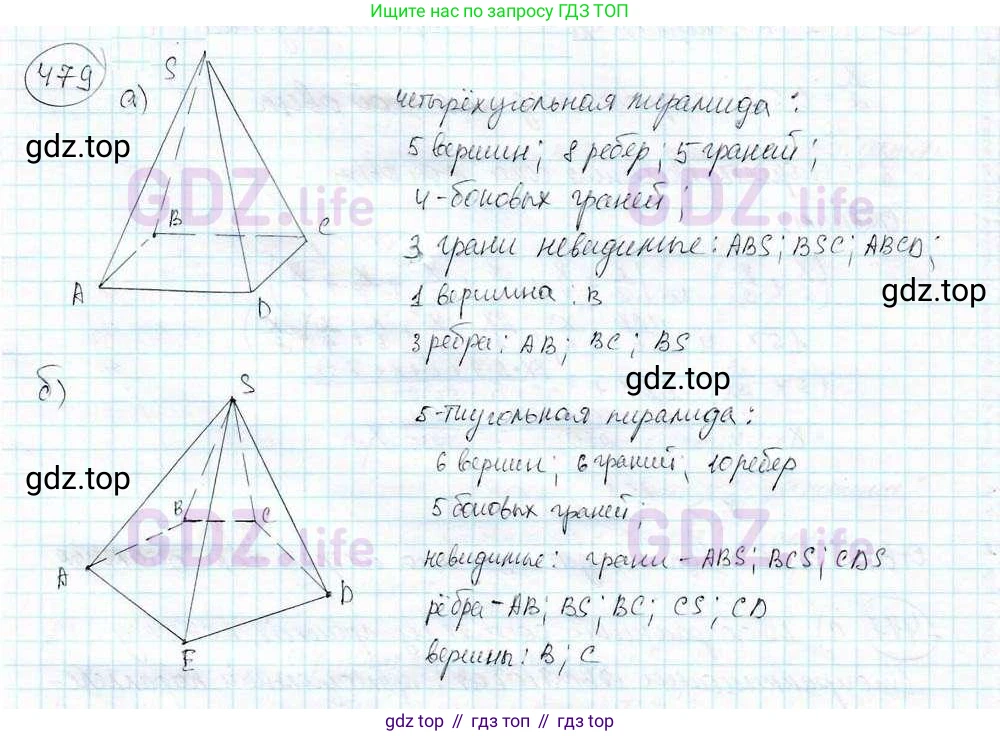 Ищите нас по запросу ГДЗ ТОП
479
а)
S
B
C
A
D
четырёхугольная пирамида:
5 вершин; 8 ребер; 5 граней;
4-боковых граней;
3 грани невидимые: ABS; BSC; ABCD;
1 вершина: B
3 ребра: AB; BC; BS
б)
S
B
C
A
D
E
5-тиугольная пирамида:
6 вершин; 6 граний; 10 ребер
5 боковых граней;
невидимые: грани - ABS; BCS; CDS
рёбра - AB; BS; BC; CS; CD
вершины: B; C
gdz.top
gdz.top
gdz.top
gdz.top
GDZ.life
GDZ.life
GDZ.life
GDZ.life
gdz.top // гдз топ // gdz.top